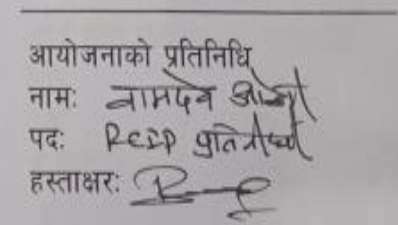 आयोजनाको प्रतिनिधि
नाम: वामदेव ओझा
पद: RCIP प्रतिनिधि
हस्ताक्षर: